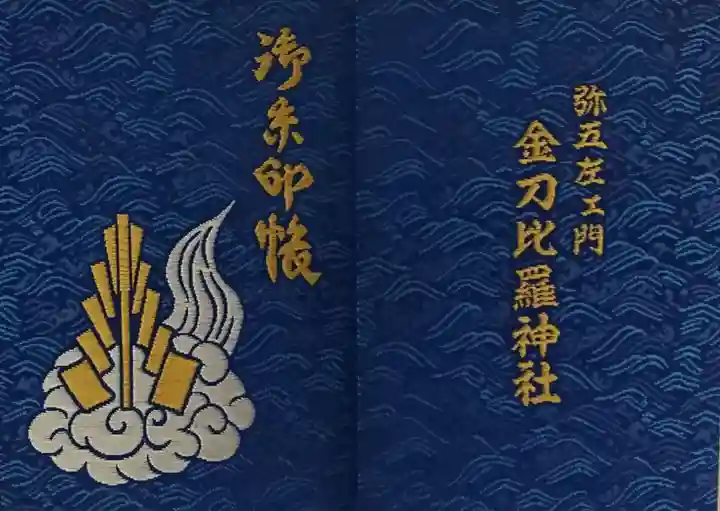 弥五左ェ門
金刀比羅神社
御朱印帳